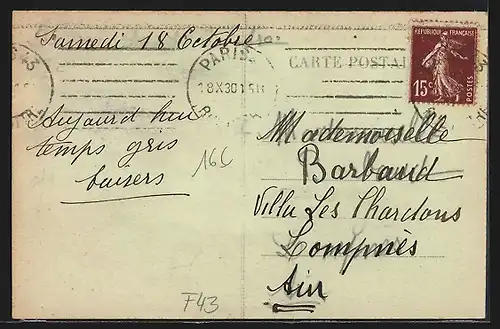 Samedi 18 Octobre
PARIS
18 X 30
CARTE POSTALE
RÉPUBLIQUE FRANÇAISE
15c
POSTES
Aujourd hui
temps gris
baisers
16C
Mademoiselle
Barbaud
Villa Les Chardons
Lompnès
Ain
F43